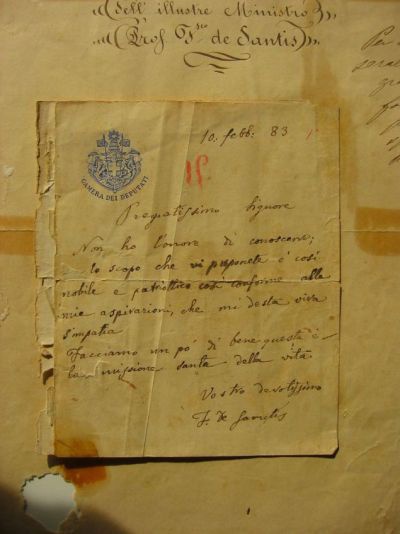 dell' illustre Ministro
Prof. F.sco de Santis
10. febb: 83
CAMERA DEI DEPUTATI
Pregiatissimo Signore
Non ho l'onore di conoscervi;
lo scopo che vi proponete è così
nobile e patriottico così conforme alle
mie aspirazioni, che mi desta viva
simpatia
Facciamo un pò di bene questa è
la missione santa della vita
Vostro devotissimo
F. De Sanctis